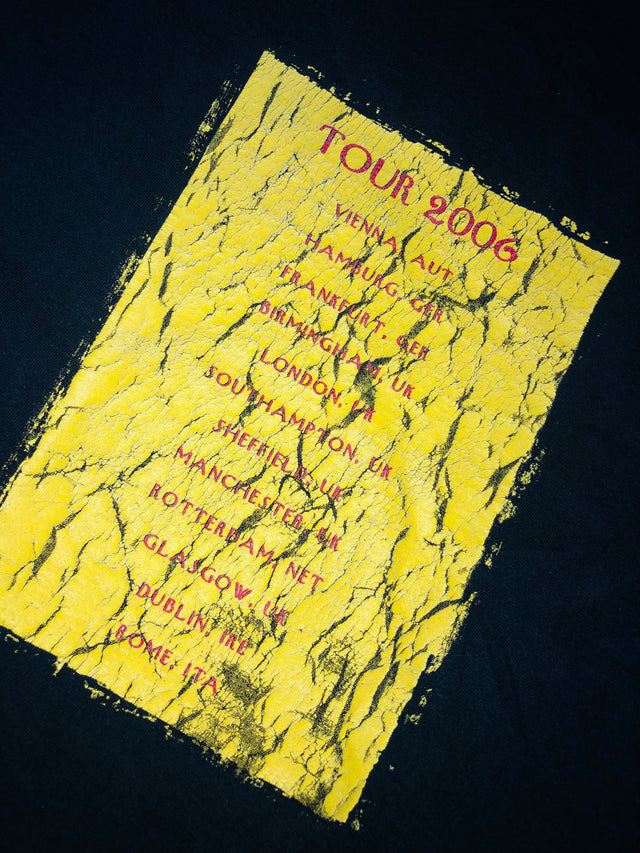 TOUR 2006
VIENNA, AUT
HAMBURG, GER
FRANKFURT, GER
BIRMINGHAM, UK
LONDON, UK
SOUTHAMPTON, UK
SHEFFIELD, UK
MANCHESTER, UK
ROTTERDAM, NET
GLASGOW, UK
DUBLIN, IRE
ROME, ITA